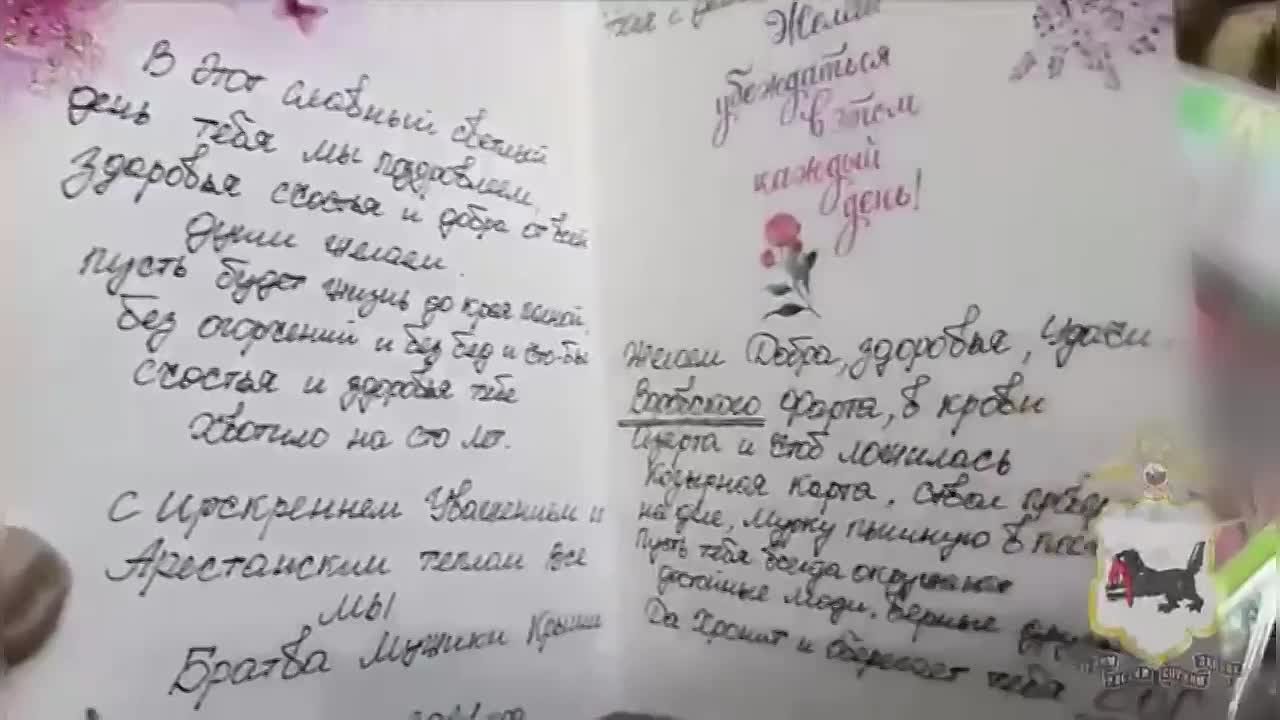 В этот славный светлый
день тебя мы поздровляем,
Здоровья счостья и добра от всей
души желаем.
пусть будет жизнь до края полной,
без огорчений и без бед и что-бы
счостья и здоровья тебе
Хвотило на сто лет.
С Искреннем Уважением и
Арестанским теплом все
мы
Братва Мужики Крыши
тебя с
Желаем
убеждаться
в этом
каждый
день!
Желаем Добра, здоровья, Удачи
Воровского Фарта, в крови
Озарта и чтоб ложилась
Козырная карта. ствол
на дне, Мурку пышную в
Пусть тебя всегда окружают
достойные люди. верные
Да Хронит и Оберегает тебя